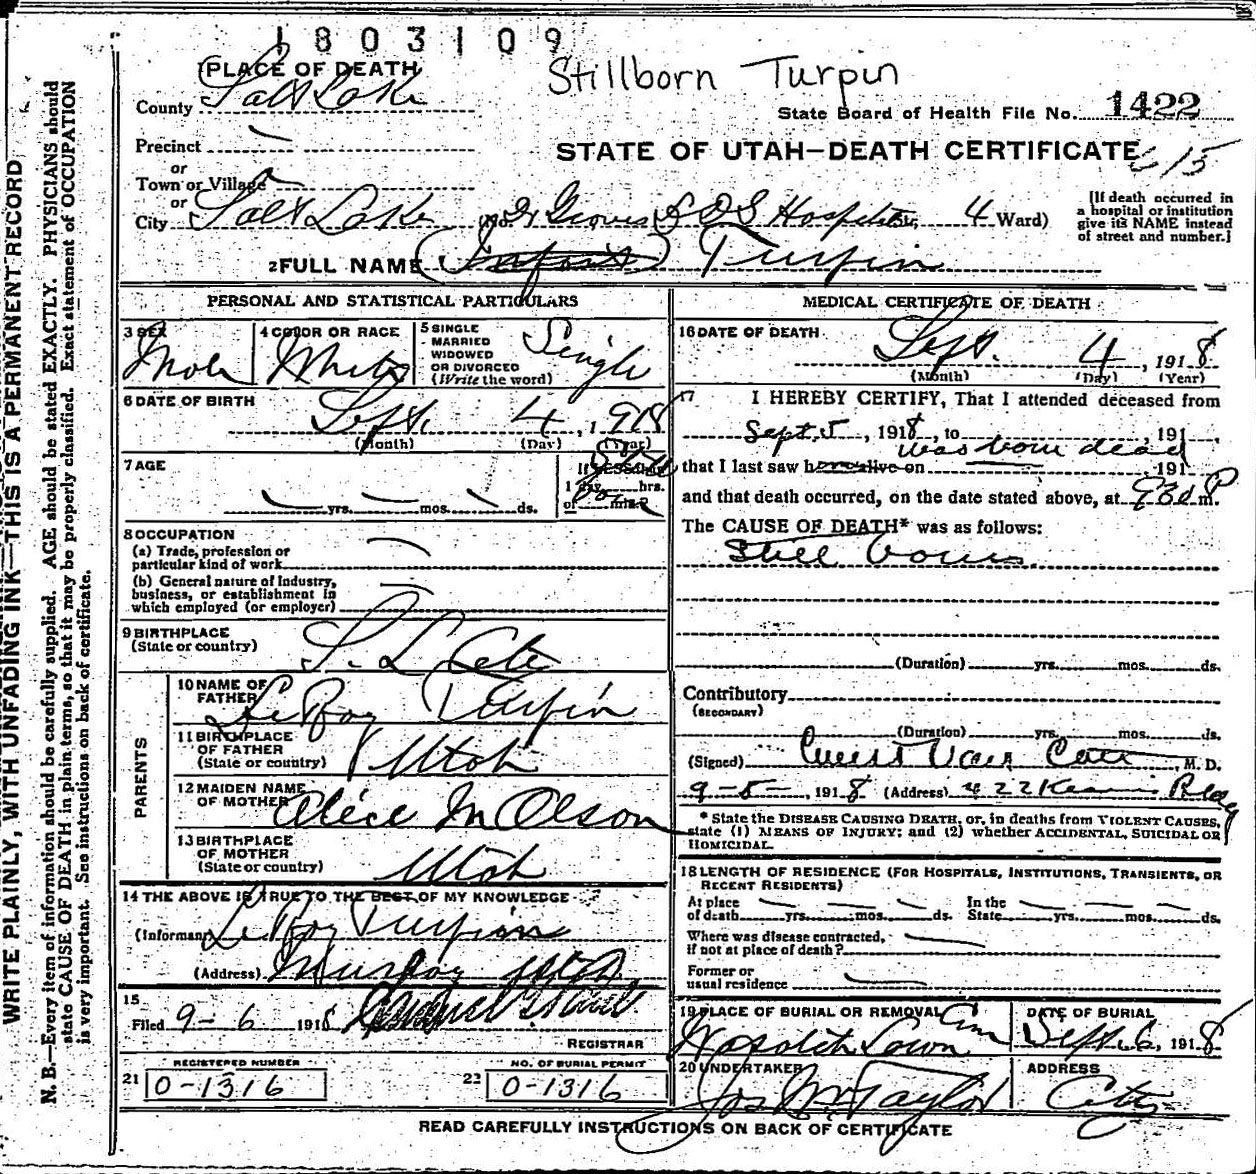 1803109
Stillborn Turpin
PLACE OF DEATH
County Salt Lake
State Board of Health File No. 1422
Precinct
STATE OF UTAH—DEATH CERTIFICATE
615
or
Town or Village
or
City Salt Lake (No. Dr Groves L D S Hospital St; 4 Ward)
[If death occurred in
a hospital or institution
give its NAME instead
of street and number.]
2 FULL NAME (Infant) Turpin
PERSONAL AND STATISTICAL PARTICULARS
3 SEX Male
4 COLOR OR RACE White
5 SINGLE
MARRIED
WIDOWED
OR DIVORCED
(Write the word)
Single
6 DATE OF BIRTH
Sept. 4, 1918
(Month) (Day) (Year)
7 AGE
yrs. mos. ds.
If LESS than
1 day hrs.
or min.
Still
born
8 OCCUPATION
(a) Trade, profession or
particular kind of work
(b) General nature of Industry,
business, or establishment in
which employed (or employer)
9 BIRTHPLACE
(State or country)
S. L. City
PARENTS
10 NAME OF
FATHER
LeRoy Turpin
11 BIRTHPLACE
OF FATHER
(State or country)
Utah
12 MAIDEN NAME
OF MOTHER
Alice M Olson
13 BIRTHPLACE
OF MOTHER
(State or country)
Utah
14 THE ABOVE IS TRUE TO THE BEST OF MY KNOWLEDGE
(Informant) LeRoy Turpin
(Address) Murray Utah
15
Filed 9-6 1918
REGISTRAR
REGISTERED NUMBER
21 0-1316
NO. OF BURIAL PERMIT
22 0-1316
MEDICAL CERTIFICATE OF DEATH
16 DATE OF DEATH
Sept. 4, 1918
(Month) (Day) (Year)
17 I HEREBY CERTIFY, That I attended deceased from
Sept 5, 1918, to 191
was born dead
that I last saw h alive on 191
and that death occurred, on the date stated above, at 930 P m.
The CAUSE OF DEATH* was as follows:
Still born
(Duration) yrs. mos. ds.
Contributory
(SECONDARY)
(Duration) yrs. mos. ds.
(Signed) Van Cott, M. D.
9-5-, 1918 (Address) 422 Kearns Bldg
* State the DISEASE CAUSING DEATH, or, in deaths from VIOLENT CAUSES,
state (1) MEANS OF INJURY; and (2) whether ACCIDENTAL, SUICIDAL OR
HOMICIDAL.
18 LENGTH OF RESIDENCE (FOR HOSPITALS, INSTITUTIONS, TRANSIENTS, OR
RECENT RESIDENTS)
At place
of death yrs. mos. ds.
In the
State yrs. mos. ds.
Where was disease contracted,
if not at place of death?
Former or
usual residence
19 PLACE OF BURIAL OR REMOVAL
Wasatch Lawn Cem
DATE OF BURIAL
Sept. 6, 1918
20 UNDERTAKER
Jos Wm Taylor
ADDRESS
City
READ CAREFULLY INSTRUCTIONS ON BACK OF CERTIFICATE
WRITE PLAINLY, WITH UNFADING INK—THIS IS A PERMANENT RECORD
N. B.—Every item of information should be carefully supplied. AGE should be stated EXACTLY. PHYSICIANS should
state CAUSE OF DEATH in plain terms, so that it may be properly classified. Exact statement of OCCUPATION
is very important. See instructions on back of certificate.